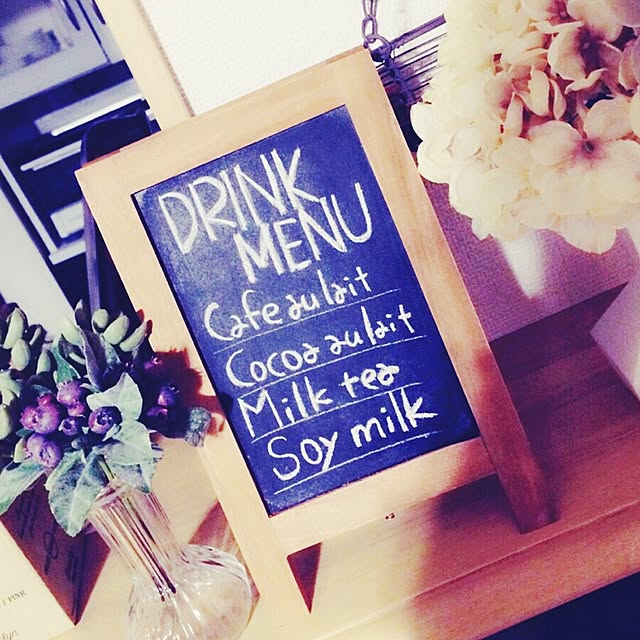 DRINK
MENU
Cafe au lait
Cocoa au lait
Milk tea
Soy milk
/ PINK